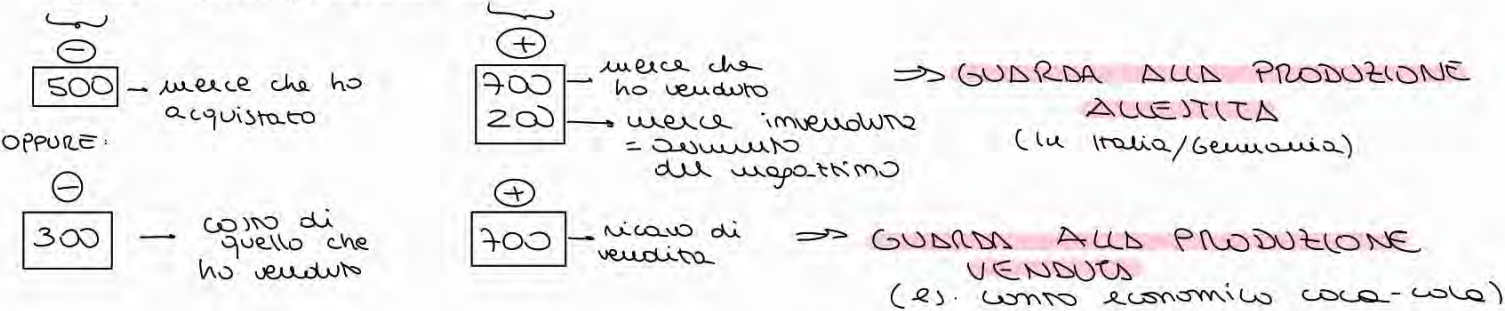 ⊖ ⊕
500 → merce che ho acquistato
700 → merce che ho venduto
200 → merce invenduta = aumento del magazzino
⇒ GUARDA ALLA PRODUZIONE ALLESTITA
(In Italia/Germania)
OPPURE:
⊖ ⊕
300 → costo di quello che ho venduto
700 → ricavo di vendita
⇒ GUARDA ALLA PRODUZIONE VENDUTA
(es. conto economico coca-cola)